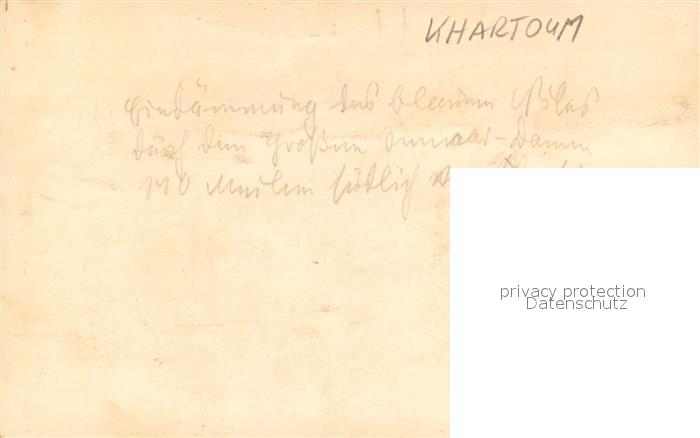 KHARTOUM
Eindämmung des blauen Niles
durch den Großen Sennaar-Damm
170 Meilen südlich
privacy protection
Datenschutz